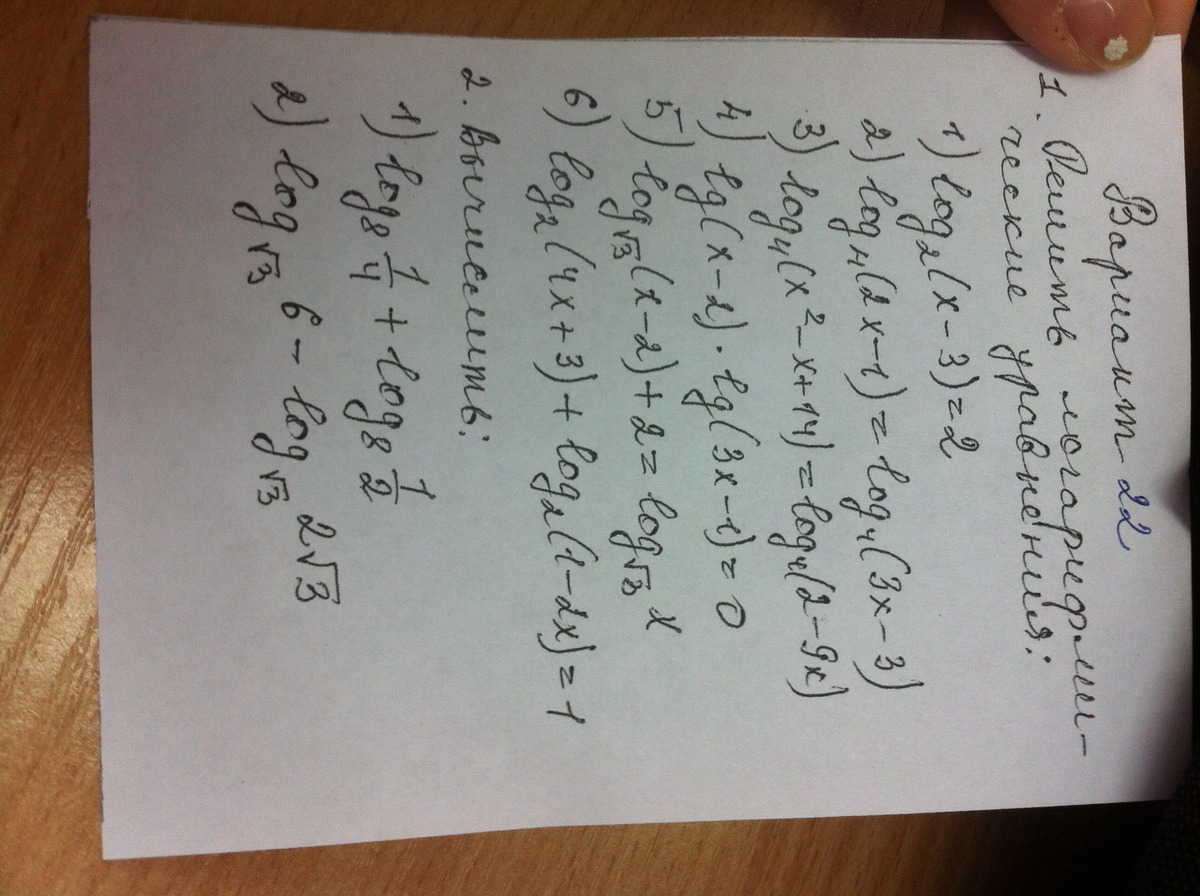 Вариант 22
1. Решить логарифми-
ческие уравнения:
1) log₂(x-3)=2
2) log₄(2x-1)=log₄(3x-3)
3) log₄(x²-x+14)=log₄(2-9x)
4) lg(x-2)·lg(3x-1)=0
5) log_√3(x-2)+2=log_√3 x
6) log₂(4x+3)+log₂(1-2x)=1
2. Вычислить:
1) log₈ 1/4 + log₈ 1/2
2) log_√3 6 - log_√3 2√3